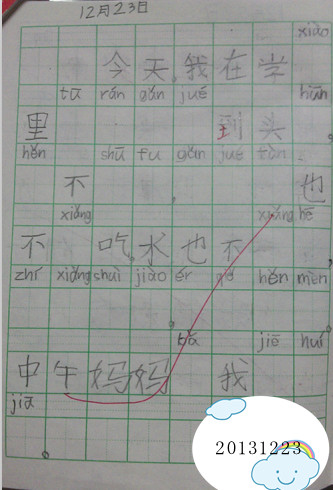 12月23日
xiào
今天,我在学
tū rán gǎn jué hūn
里 到头,
hěn shū fu gǎn jué
不 , 也
xiǎng xiǎng hē
不 吃,水也不
zhǐ xiǎng shuì jiào ér qě hěn mèn
。 。
jiē huí
中午妈妈 我
jiā
。
20131223